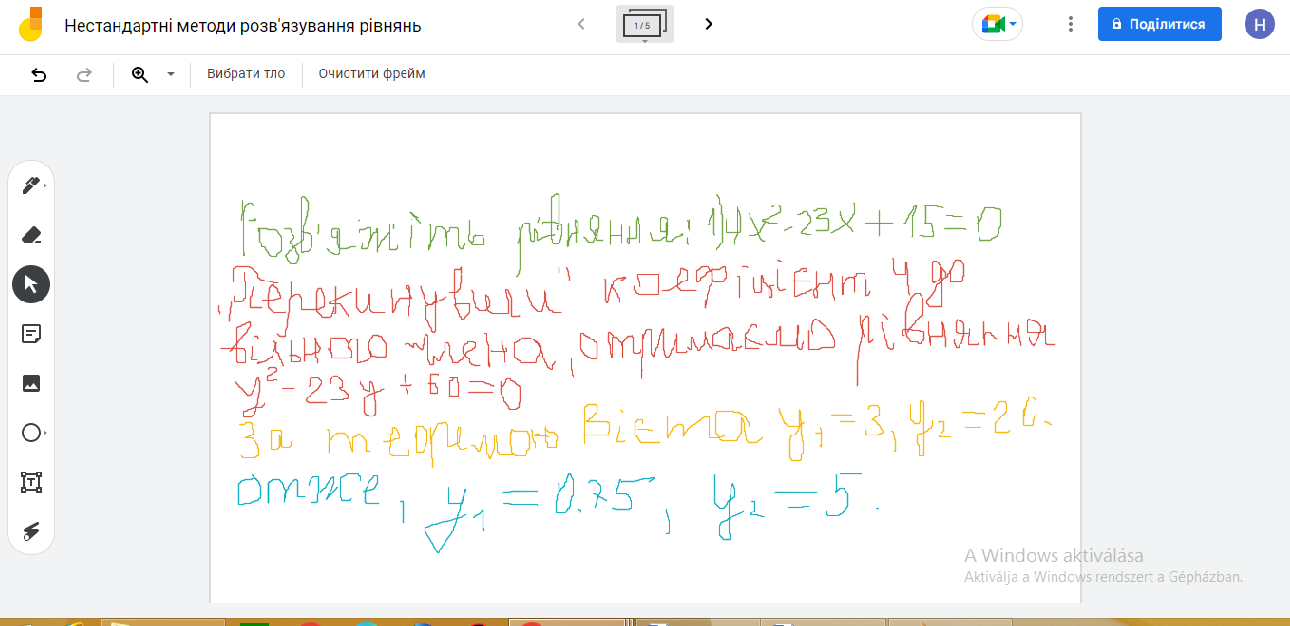 Нестандартні методи розв'язування рівнянь
1 / 5
Поділитися
Н
Вибрати тло
Очистити фрейм
Розв'яжіть рівняння: 1)4x²-23x+15=0
„Перекинувши" коефіцієнт 4 до
вільного члена, отримаємо рівняння
y²-23y+60=0
За теоремою Вієта y₁=3, y₂=20.
отже, y₁=0.75, y₂=5.
A Windows aktiválása
Aktiválja a Windows rendszert a Gépházban.